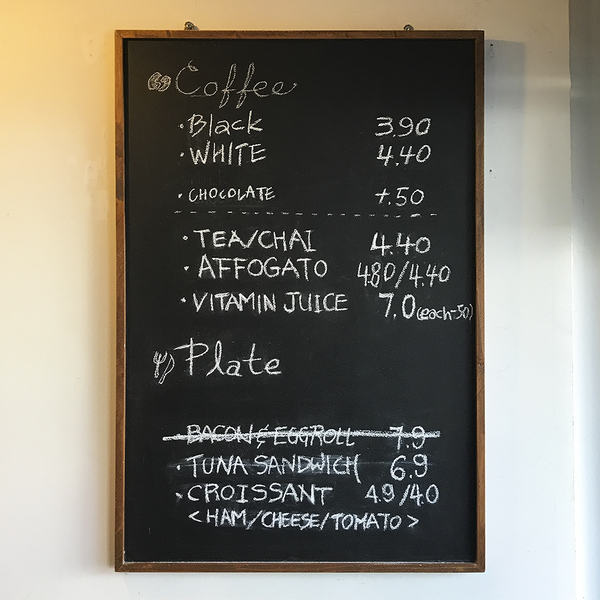 Coffee
· Black 3.90
· WHITE 4.40
· CHOCOLATE +.50
· TEA/CHAI 4.40
· AFFOGATO 4.80/4.40
· VITAMIN JUICE 7.0 (each-50)
Plate
· BACON & EGGROLL 7.9
· TUNA SANDWICH 6.9
· CROISSANT 4.9/4.0
< HAM/CHEESE/TOMATO >